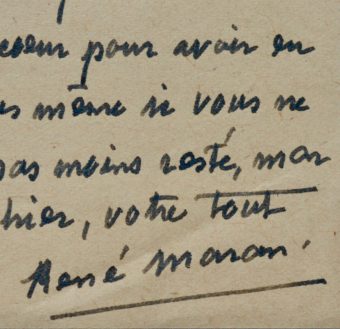 coeur pour avoir en
us même si vous ne
pas moins resté, mon
hier, votre tout
René Maran.